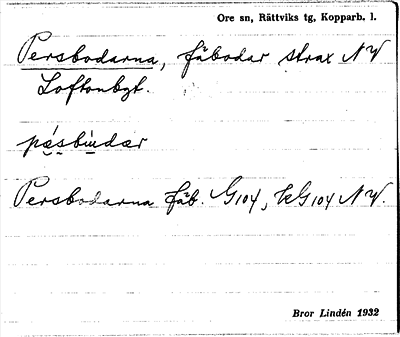 Ore sn, Rättviks tg, Kopparb. l.
Persbodarna, fäbodar strax NV
Loftonbyt.
pä́sbùdar
Persbodarna fäb. G104, kG104 NV.
Bror Lindén 1932